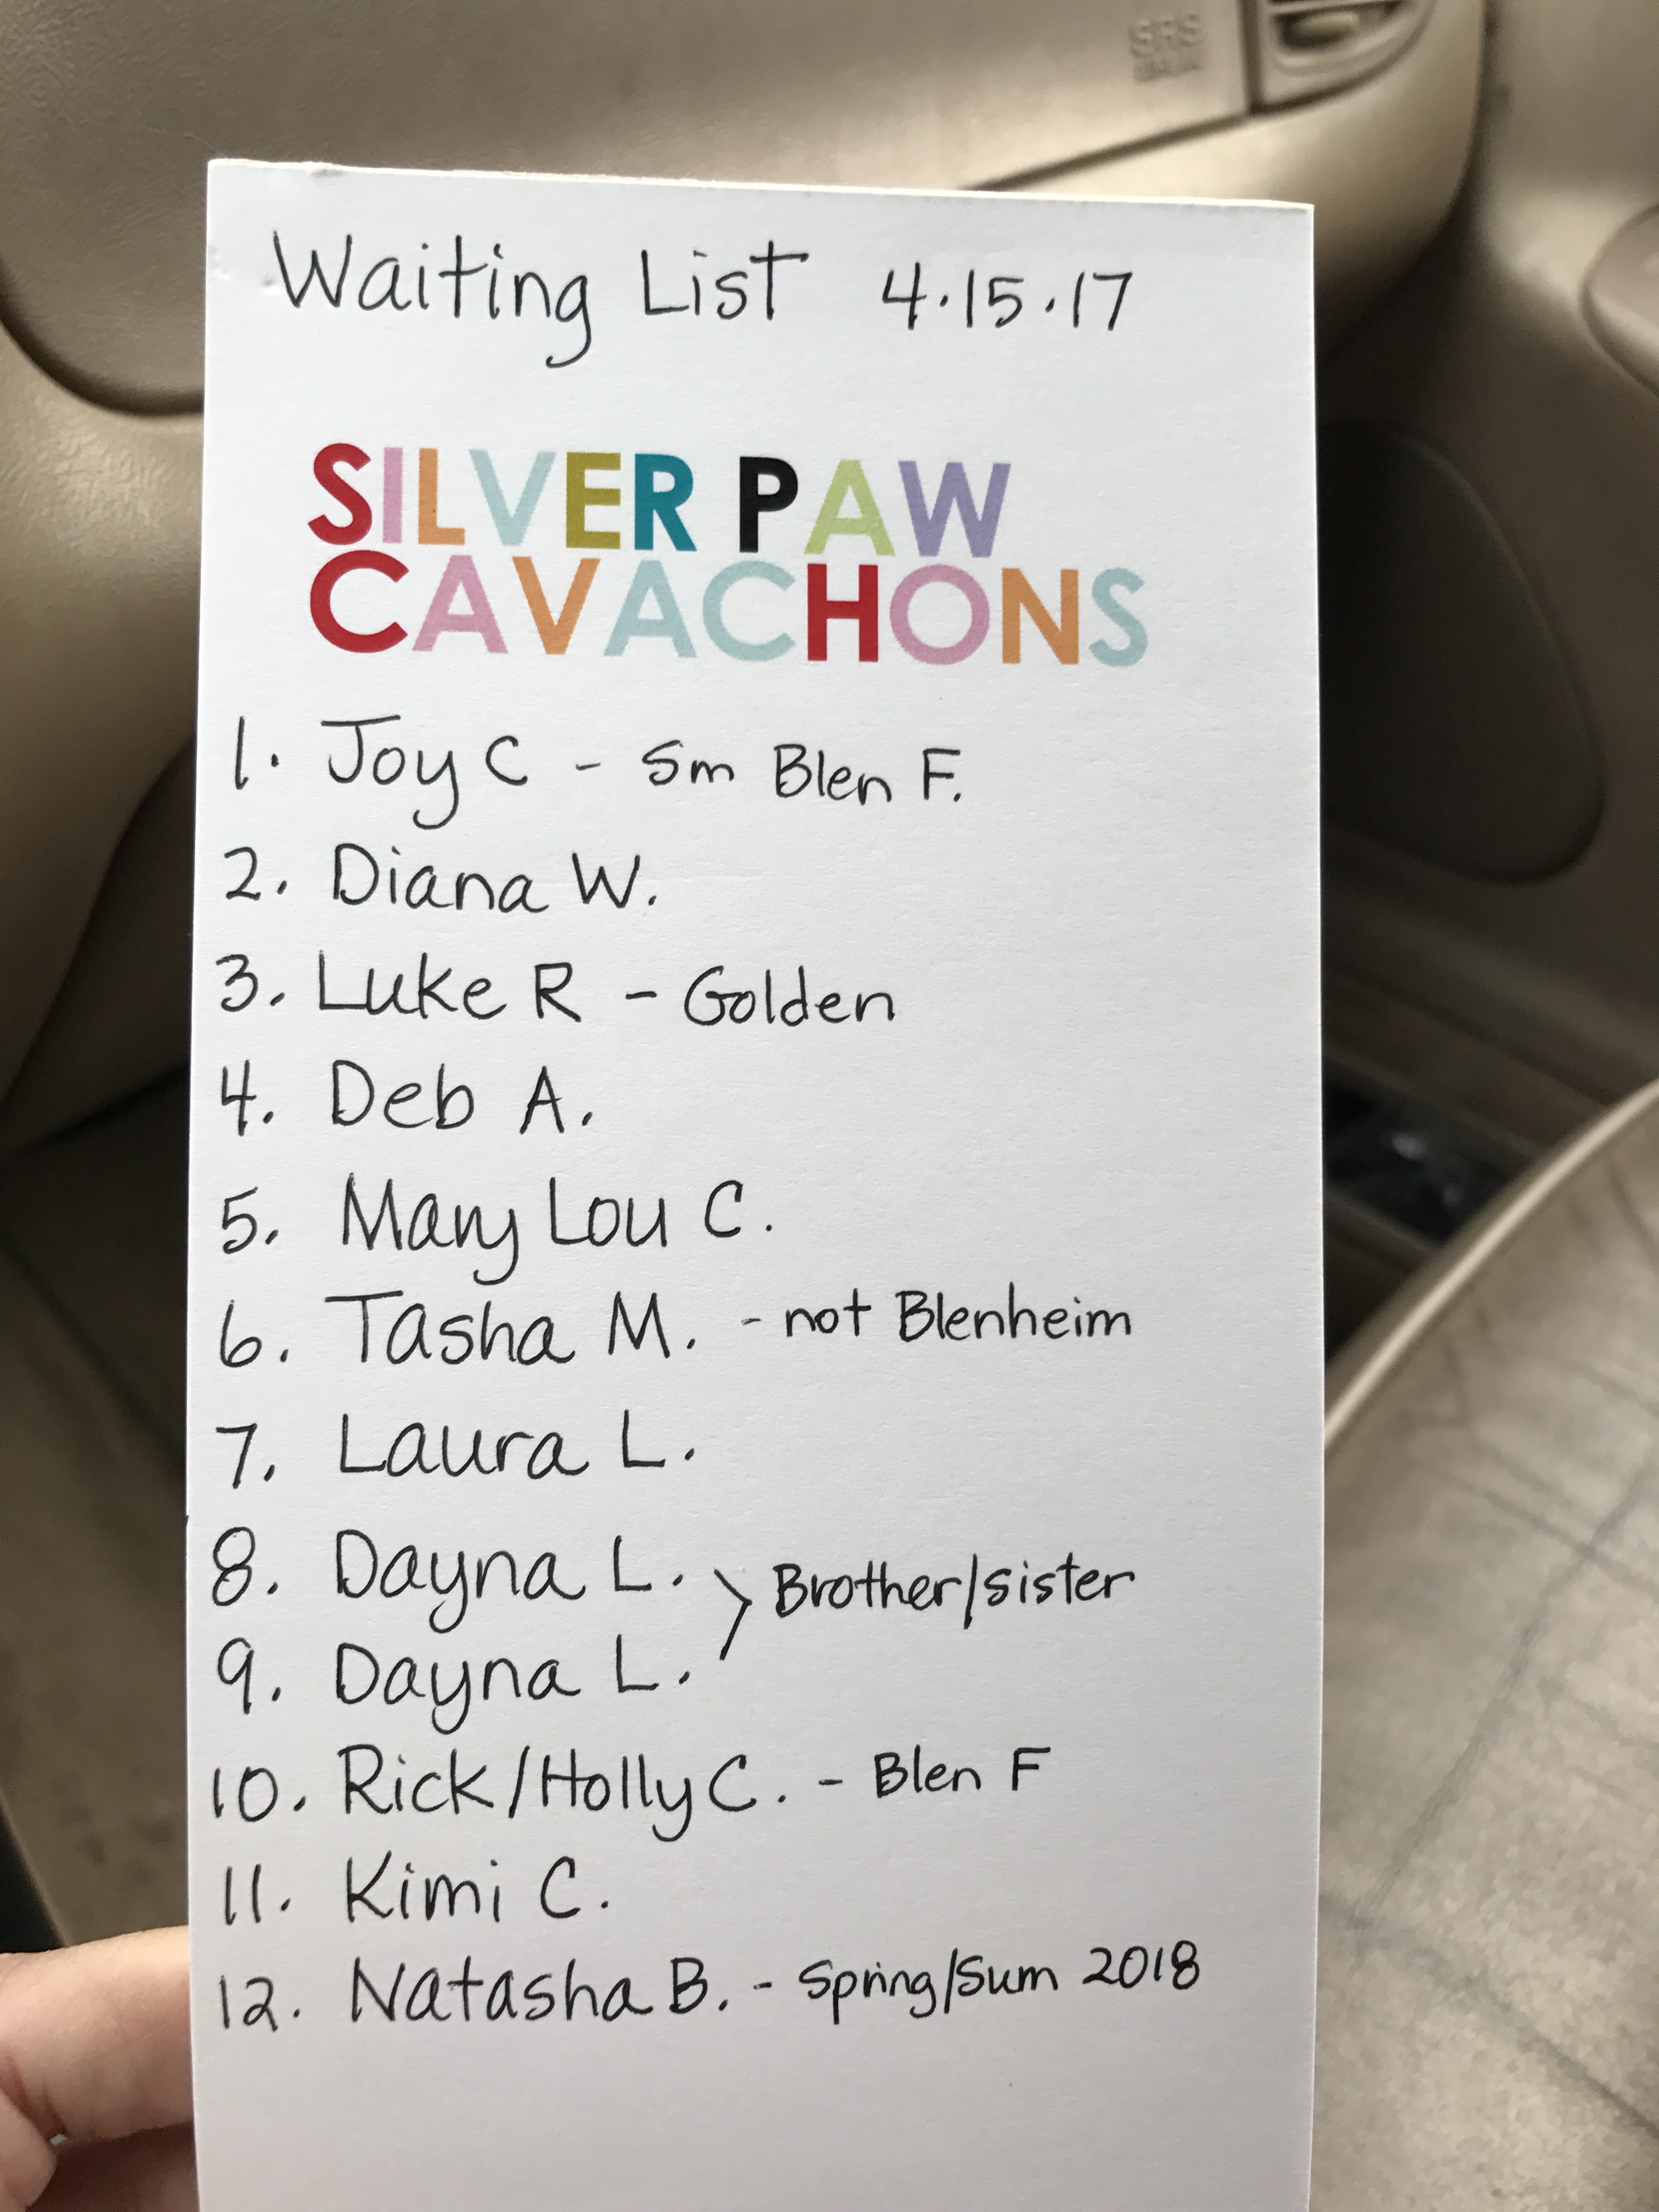 SRS
Waiting List 4.15.17
SILVER PAW
CAVACHONS
1. Joy C - Sm Blen F.
2. Diana W.
3. Luke R - Golden
4. Deb A.
5. Mary Lou C.
6. Tasha M. - not Blenheim
7. Laura L.
8. Dayna L.
> Brother/sister
9. Dayna L.
10. Rick/Holly C. - Blen F
11. Kimi C.
12. Natasha B. - Spring/Sum 2018